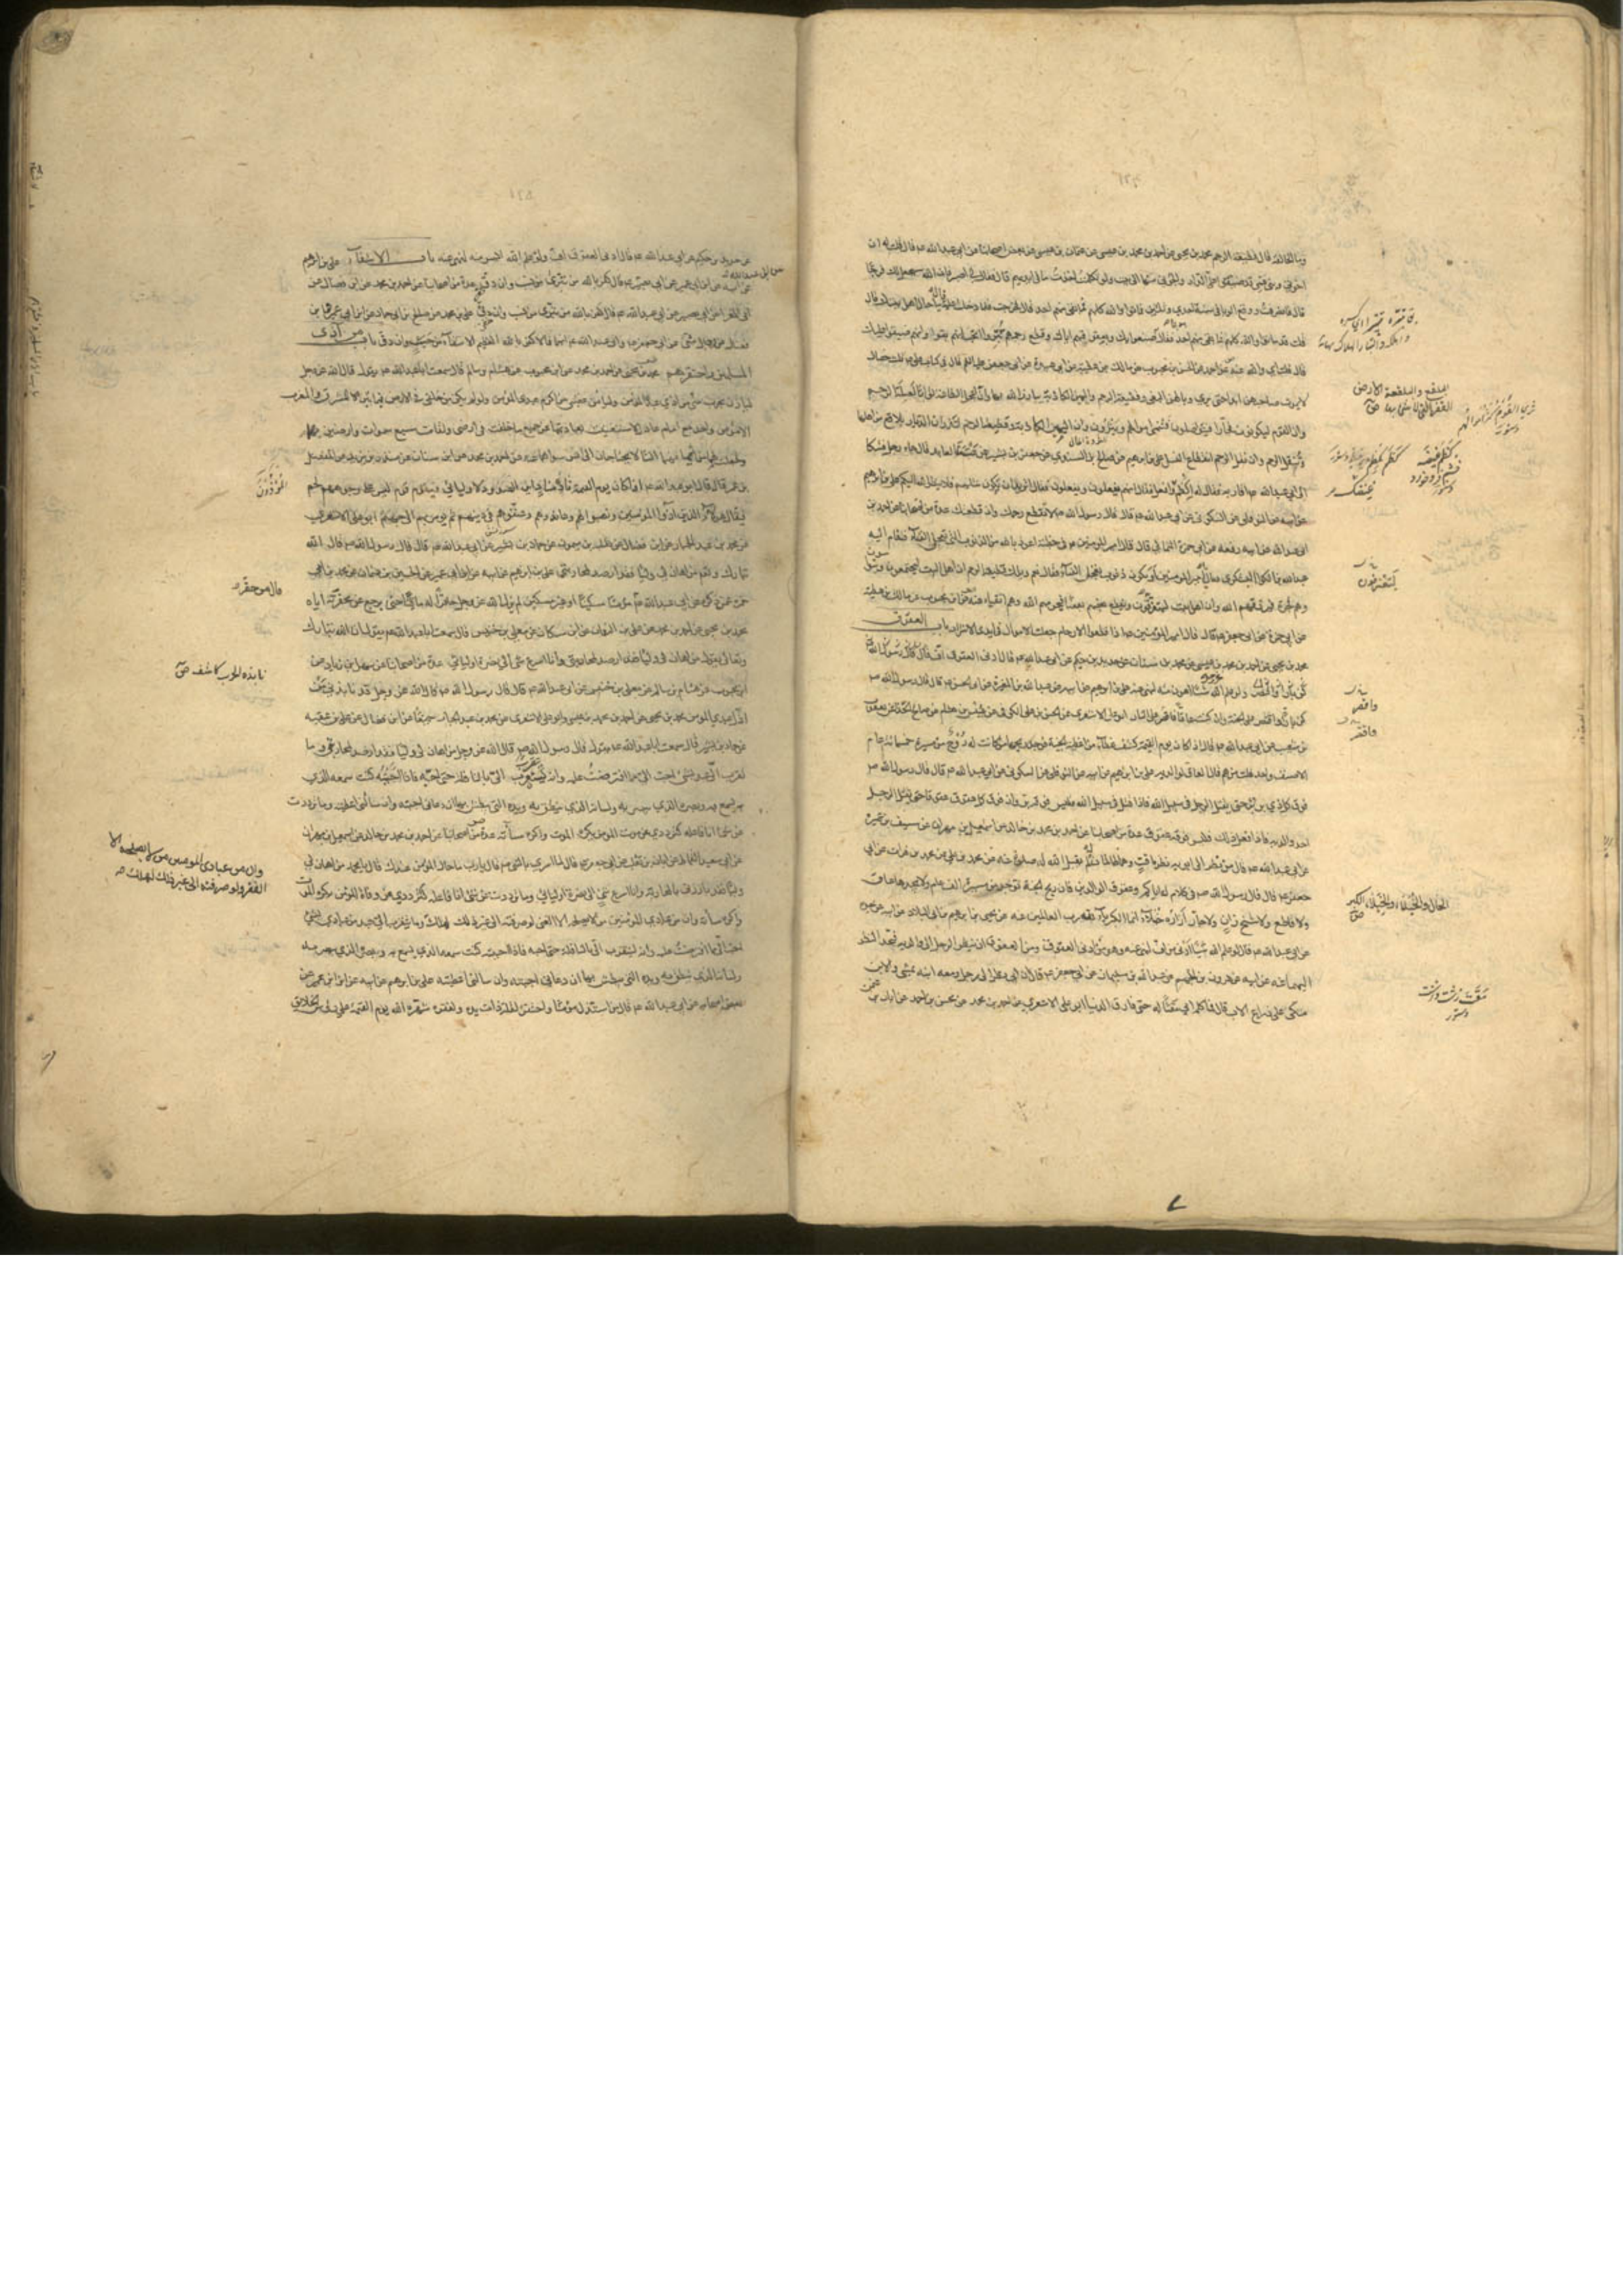 وما الحالقة قال قطيعة الرحم محمد بن يحيى عن احمد بن محمد بن عيسى عن عثمان بن عيسى عن بعض اصحابنا عن ابي عبد الله ع قال قلت له ان
اخوتي وبني عمي قد ضيقوا علي الدار والجؤني منها الى بيت ولو تكلمت اخذت ما في ايديهم قال فقال لي اصبر فان الله سيجعل لك فرجا
قال فانصرفت ووقع الوباء في سنة احدى وثلثين فماتوا والله كلهم فما بقي منهم احد قال فخرجت فلما دخلت عليه قال ما حال اهل بيتك قال
قلت قد ماتوا والله كلهم فما بقي منهم احد فقال هو بما صنعوا بك وبعقوقهم اياك وقطع رحمهم بتروا اتحب انهم بقوا وانهم ضيقوا عليك
قال قلت اي والله عنه عن احمد عن الحسن بن محبوب عن مالك بن عطية عن ابي عبيدة عن ابي جعفر ع قال في كتاب علي ع ثلث خصال
لا يموت صاحبهن ابدا حتى يرى وبالهن البغي وقطيعة الرحم واليمين الكاذبة يبارز الله بها وان اعجل الطاعة ثوابا لصلة الرحم
وان القوم ليكونون فجارا فيتواصلون فتنمى اموالهم ويثرون وان اليمين الكاذبة وقطيعة الرحم لتذران الديار بلاقع من اهلها
وتنقل الرحم وان نقل الرحم انقطاع النسل علي بن ابرهيم عن صالح بن السندي عن جعفر بن بشير عن عنبسة العابد قال جاء رجل فشكا
الى ابي عبد الله ع اقاربه فقال له اكظم غيظك وافعل فقال انهم يفعلون ويفعلون فقال اتريد ان تكون مثلهم فلا ينظر الله اليكم علي بن ابرهيم
عن ابيه عن النوفلي عن السكوني عن ابي عبد الله ع قال قال رسول الله ص لا تقطع رحمك وان قطعتك عدة من اصحابنا عن احمد بن
ابي عبد الله عن ابيه رفعه عن ابي حمزة الثمالي قال قال امير المؤمنين ع في خطبته اعوذ بالله من الذنوب التي تعجل الفناء فقام اليه
عبد الله بن الكوا اليشكري فقال يا امير المؤمنين او يكون ذنوب تعجل الفناء فقال نعم ويلك قطيعة الرحم ان اهل البيت ليجتمعون ويتواسون
وهم فجرة فيرزقهم الله وان اهل البيت ليتفرقون ويقطع بعضهم بعضا فيحرمهم الله وهم اتقياء عنه عن ابن محبوب عن مالك بن عطية
عن ابي حمزة عن ابي جعفر ع قال قال امير المؤمنين ع اذا قطعوا الارحام جعلت الاموال في ايدي الاشرار باب العقوق
محمد بن يحيى عن احمد بن محمد بن عيسى عن محمد بن سنان عن حديد بن حكيم عن ابي عبد الله ع قال ادنى العقوق اف
ولو علم الله شيئا اهون منه لنهى عنه علي بن ابرهيم عن ابيه عن عبد الله بن المغيرة عن ابي الحسن ع قال قال رسول الله ص
كن بارا واقتصر على الجنة وان كنت عاقا فاقتصر على النار ابو علي الاشعري عن الحسن بن علي الكوفي عن عبيس بن هشام عن صالح الحذاء عن يعقوب
بن شعيب عن ابي عبد الله ع قال اذا كان يوم القيمة كشف غطاء من اغطية الجنة فوجد ريحها من كانت له روح من مسيرة خمسمائة عام
الا صنف واحد قلت من هم قال العاق لوالديه علي بن ابرهيم عن ابيه عن النوفلي عن السكوني عن ابي عبد الله ع قال قال رسول الله ص
فوق كل ذي بر بر حتى يقتل الرجل في سبيل الله فاذا قتل في سبيل الله فليس فوقه بر وان فوق كل عقوق عقوقا حتى يقتل الرجل
احد والديه فاذا فعل ذلك فليس فوقه عقوق عدة من اصحابنا عن احمد بن محمد بن خالد عن اسمعيل بن مهران عن سيف بن عميرة
عن ابي عبد الله ع قال من نظر الى ابويه نظر ماقت وهما ظالمان له لم يقبل الله له صلوة عنه عن محمد بن علي عن محمد بن فرات عن ابي
جعفر ع قال قال رسول الله ص في كلام له اياكم وعقوق الوالدين فان ريح الجنة توجد من مسيرة الف عام ولا يجدها عاق
ولا قاطع ولا شيخ زان ولا جار ازاره خيلاء انما الكبرياء لله رب العالمين عنه عن يحيى بن ابرهيم بن ابي البلاد عن ابيه عن جده
عن ابي عبد الله ع قال لو علم الله شيئا ادنى من اف لنهى عنه وهو من ادنى العقوق ومن العقوق ان ينظر الرجل الى والديه فيحد النظر
اليهما عنه عن ابيه عن هرون بن الجهم عن عبد الله بن سليمان عن ابي جعفر ع قال ان ابي نظر الى رجل ومعه ابنه يمشي والابن
متكئ على ذراع الاب قال فما كلمه ابي مقتا له حتى فارق الدنيا ابو علي الاشعري عن احمد بن محمد عن محسن بن احمد عن ابان بن
البلقع والبلقعة الارض
القفر التي لا شئ بها ص
الخال والخيلاء والخيلاء الكبر
ص
عن حديد بن حكيم عن ابي عبد الله ع قال ادنى العقوق اف ولو علم الله ايسر منه لنهى عنه باب الانتفاء علي بن ابرهيم
عن ابيه عن ابن ابي عمير عن ابي بصير ع قال كفر بالله من تبرأ من نسب وان دق عدة من اصحابنا عن احمد بن محمد عن ابن فضال عن
ابي المغرا عن ابي بصير عن ابي عبد الله ع قال كفر بالله من تبرأ من نسب وان دق علي بن محمد عن صالح بن ابي حماد عن ابن ابي عمير وابن
فضال عن رجال شتى عن ابي جعفر وابي عبد الله ع انهما قالا كفر بالله العظيم الانتفاء من حسب وان دق باب من آذى
المسلمين واحتقرهم محمد بن يحيى عن احمد بن محمد عن ابن محبوب عن هشام بن سالم قال سمعت ابا عبد الله ع يقول قال الله عز وجل
ليأذن بحرب مني من آذى عبدي المؤمن وليأمن غضبي من اكرم عبدي المؤمن ولو لم يكن من خلقي في الارض فيما بين المشرق والمغرب
الا مؤمن واحد مع امام عادل لاستغنيت بعبادتهما عن جميع ما خلقت في ارضي ولقامت سبع سموات وارضين بهما
ولجعلت لهما من ايمانهما انسا لا يحتاجان الى انس سواهما عنه عن احمد بن محمد عن ابن سنان عن منذر بن يزيد عن المفضل
بن عمر قال قال ابو عبد الله ع اذا كان يوم القيمة نادى مناد اين الصدود لاوليائي فيقوم قوم ليس على وجوههم لحم
فيقال هؤلاء الذين آذوا المؤمنين ونصبوا لهم وعاندوهم وعنفوهم في دينهم ثم يؤمر بهم الى جهنم ابو علي الاشعري
عن محمد بن عبد الجبار عن ابن فضال عن ثعلبة بن ميمون عن حماد بن بشير عن ابي عبد الله ع قال قال رسول الله ص قال الله
تبارك وتعالى من اهان لي وليا فقد ارصد لمحاربتي علي بن ابرهيم عن ابيه عن ابن ابي عمير عن الحسين بن عثمان عن محمد بن ابي
حمزة عمن ذكره عن ابي عبد الله ع قال من حقر مؤمنا مسكينا او غير مسكين لم يزل الله عز وجل حاقرا له ماقتا حتى يرجع عن محقرته اياه
محمد بن يحيى عن احمد بن محمد عن علي بن النعمان عن ابن مسكان عن معلى بن خنيس قال سمعت ابا عبد الله ع يقول ان الله تبارك
وتعالى يقول من اهان لي وليا فقد ارصد لمحاربتي وانا اسرع شئ الى نصرة اوليائي عدة من اصحابنا عن سهل بن زياد عن
ابن محبوب عن هشام بن سالم عن معلى بن خنيس عن ابي عبد الله ع قال قال رسول الله ص قال الله عز وجل قد نابذني من
اذل عبدي المؤمن محمد بن يحيى عن احمد بن محمد بن عيسى وابو علي الاشعري عن محمد بن عبد الجبار جميعا عن ابن فضال عن علي بن عقبة
عن حماد بن بشير قال سمعت ابا عبد الله ع يقول قال رسول الله ص قال الله عز وجل من اهان لي وليا فقد ارصد لمحاربتي وما
تقرب الي عبد بشئ احب الي مما افترضت عليه وانه ليتقرب الي بالنافلة حتى احبه فاذا احببته كنت سمعه الذي
يسمع به وبصره الذي يبصر به ولسانه الذي ينطق به ويده التي يبطش بها ان دعاني اجبته وان سألني اعطيته وما ترددت
عن شئ انا فاعله كترددي عن موت المؤمن يكره الموت واكره مساءته عدة من اصحابنا عن احمد بن محمد بن خالد عن اسمعيل بن مهران
عن ابي سعيد القماط عن ابان بن تغلب عن ابي جعفر ع قال لما اسري بالنبي ص قال يا رب ما حال المؤمن عندك قال يا محمد من اهان لي
وليا فقد بارزني بالمحاربة وانا اسرع شئ الى نصرة اوليائي وما ترددت عن شئ انا فاعله كترددي عن وفاة المؤمن يكره الموت
واكره مساءته وان من عبادي المؤمنين من لا يصلحه الا الغنى ولو صرفته الى غير ذلك لهلك وما يتقرب الي عبد من عبادي بشئ
احب الي مما افترضت عليه وانه ليتقرب الي بالنافلة حتى احبه فاذا احببته كنت سمعه الذي يسمع به وبصره الذي يبصر به
ولسانه الذي ينطق به ويده التي يبطش بها ان دعاني اجبته وان سألني اعطيته علي بن ابرهيم عن ابيه عن ابن ابي عمير عن
بعض اصحابه عن ابي عبد الله ع قال من استذل مؤمنا واحتقره لقلة ذات يده ولفقره شهره الله يوم القيمة على رؤس الخلائق
نابذه الحرب كاشفه ص
وان من عبادي المؤمنين من لا يصلحه الا
الفقر ولو صرفته الى غير ذلك لهلك